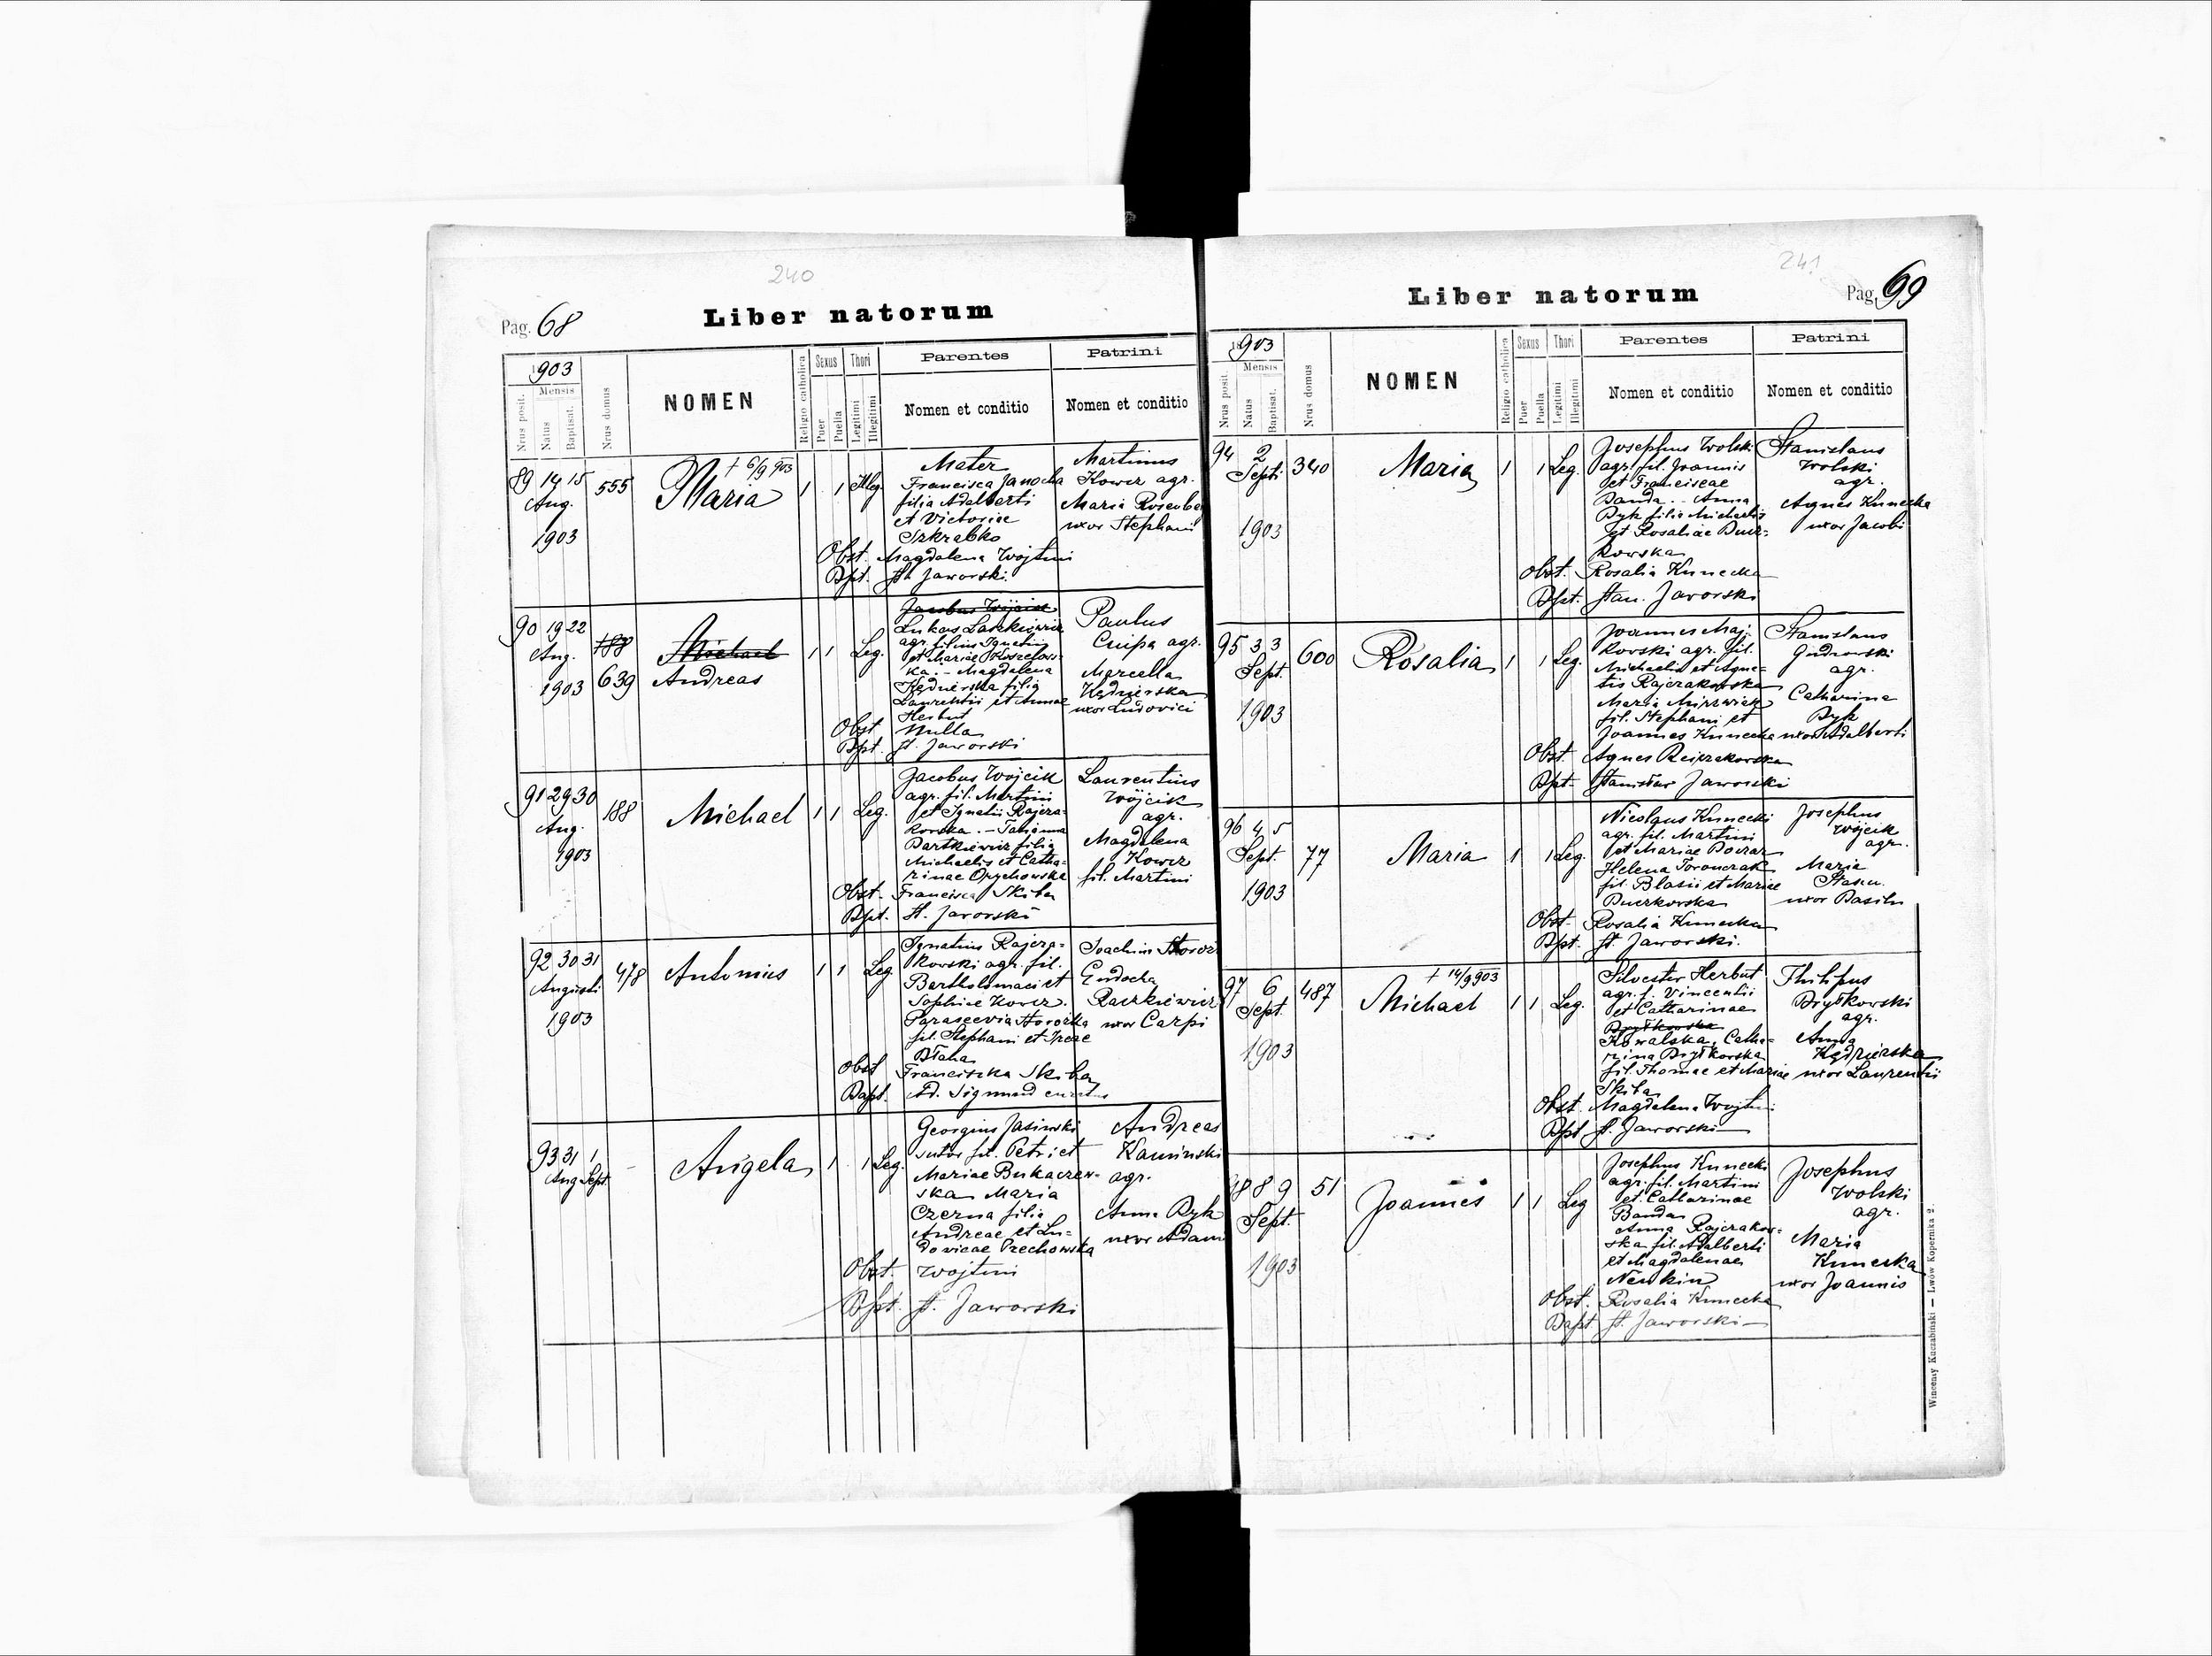 240
Pag. 68
Liber natorum
1903
Mensis
Nrus posit.
Natus
Baptisat.
Nrus domus
NOMEN
Religio catholica
Sexus
Puer
Puella
Thori
Legitimi
Illegitimi
Parentes
Nomen et conditio
Patrini
Nomen et conditio
89 14 15 555 Maria † 6/9 903 1 1 Illeg.
Aug.
1903
Mater
Francisca Janocha
filia Adalberti
et Victoriae
Skrabko
Martinus
Kowcz agr.
Maria
uxor Stephani
Obst. Magdalena Wojtun
Bpt. St. Jaworski
90 19 22 188 Michael 1 1 Leg.
Aug.
1903 639 Andreas
Jacobus Wójcik
Lukas Laszkiewicz
agr. filius Ignatii
et Mariae
ka. - Magdalena
filia
Laurentii et Annae
Herbut
Paulus
agr.
Marcella
uxor Ludovici
Obst. Nulla
Bpt. St. Jaworski
91 29 30 188 Michael 1 1 Leg.
Aug.
1903
Jacobus Wójcik
agr. fil. Martini
et Ignatii Rajcza-
kowska. - Tatjanna
Bartkiewicz filia
Michaelis et Catha-
rinae Opychowska
Laurentius
Wójcik
agr.
Magdalena
Kowcz
fil. Martini
Obst. Francisca Skiba
Bpt. St. Jaworski
92 30 31 478 Antonius 1 1 Leg.
Augusti
1903
Ignatius Rajcza-
kowski agr. fil.
Bartholomaei et
Sophiae Kowcz.
Parascevia
fil. Stephani et Irenae
Błaha
Joachim
Eudocha
Raczkiewicz
uxor Carpi
Obst Franciszka Skiba
Bapt. Ad. Sigmund
93 31 1 - Angela 1 1 Leg.
Aug Sept.
Georgius Jasinski
sutor fil. Petri et
Mariae Bukaczew-
ska Maria
Czerna filia
Andreae et Lu-
dovicae Przechowska
Andreas
Kaminski
agr.
Anna Byk
uxor Adami
Obst. Wojtun
Bpt. St. Jaworski
241
Liber natorum
Pag. 69
1903
Mensis
Nrus posit.
Natus
Baptisat.
Nrus domus
NOMEN
Religio catholica
Sexus
Puer
Puella
Thori
Legitimi
Illegitimi
Parentes
Nomen et conditio
Patrini
Nomen et conditio
94 2 340 Maria 1 1 Leg.
Sept.
1903
Josephus Wolski
agr. fil. Joannis
et Franciscae
Banda. - Anna
Byk filia Michaelis
et Rosaliae Bucz-
kowska
Stanislaus
Wolski
agr.
Agnes Kunecka
uxor Jacobi
Obst. Rosalia Kunecka
Bpt. Stan. Jaworski
95 3 3 600 Rosalia 1 1 Leg.
Sept.
1903
Joannes Maj-
kowski agr. fil.
Michaelis et Agne-
tis Rajczakowska
Maria
fil. Stephani et
Joannes Kunecka
Stanislaus
agr.
Catharina
Byk
uxor Adalberti
Obst. Agnes Rajczakowska
Bpt. Stanisław Jaworski
96 4 5 77 Maria 1 1 Leg.
Sept.
1903
Nicolaus Kunecki
agr. fil. Martini
et Mariae
Helena
fil. Blasii et Mariae
Buczkowska
Josephus
Wójcik
agr.
Maria
uxor Basilii
Obst. Rosalia Kunecka
Bpt. St. Jaworski.
97 6 487 Michael † 14/9 903 1 1 Leg.
Sept.
1903
Silvester Herbut
agr. f. Vincentii
et Catharinae
Brytkowska
Kowalska, Catha-
rina Brytkowska
fil. Thomae et Mariae
Skiba
Philipus
Brytkowski
agr.
Anna
Kędzierska
uxor Laurentii
Obst. Magdalena Wojtun
Bpt St. Jaworski
98 8 9 51 Joannes 1 1 Leg
Sept.
1903
Josephus Kunecki
agr. fil. Martini
et Catharinae
Banda
Anna Rajczakow-
ska fil. Adalberti
et Magdalenae
Josephus
Wolski
agr.
Maria
Kunecka
uxor Joannis
Obst. Rosalia Kunecka
Bapt. St. Jaworski
Wincenty Kuczabiński — Lwów Kopernika 2.